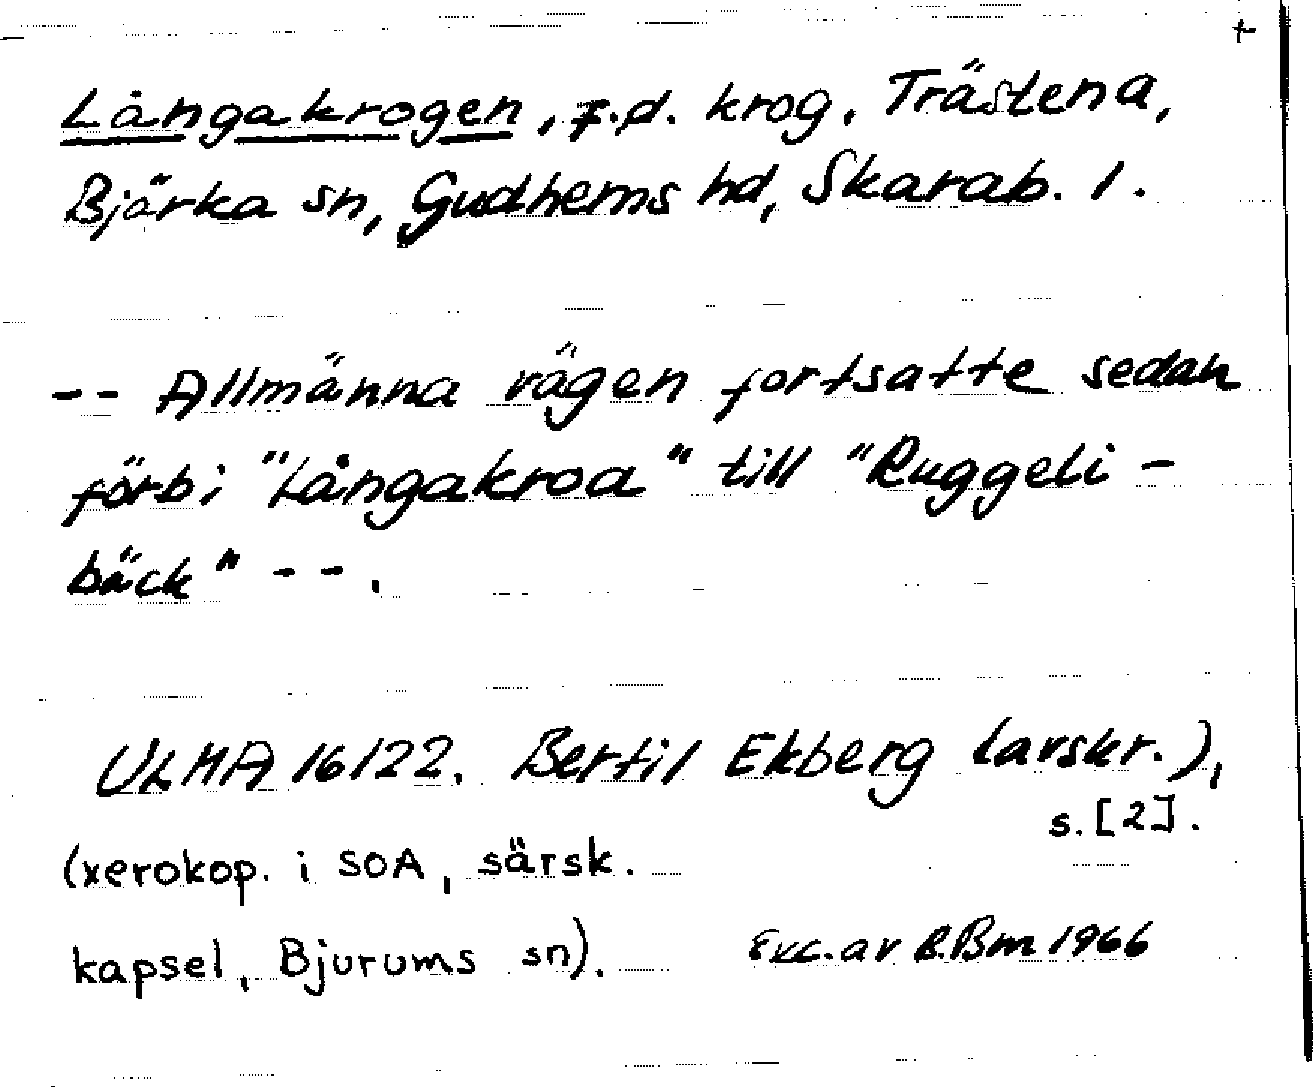 +
Långakrogen, f.d. krog, Trästena,
Bjärka sn, Gudhems hd, Skarab. l.
-- Allmänna vägen fortsatte sedan
förbi "Långakroa" till "Ruggeli-
bäck" --.
ULMA 16122. Bertil Ekberg (avskr.),
s. [2].
(xerokop. i SOA, särsk.
kapsel, Bjurums sn).
Exc. av B.Bm 1966